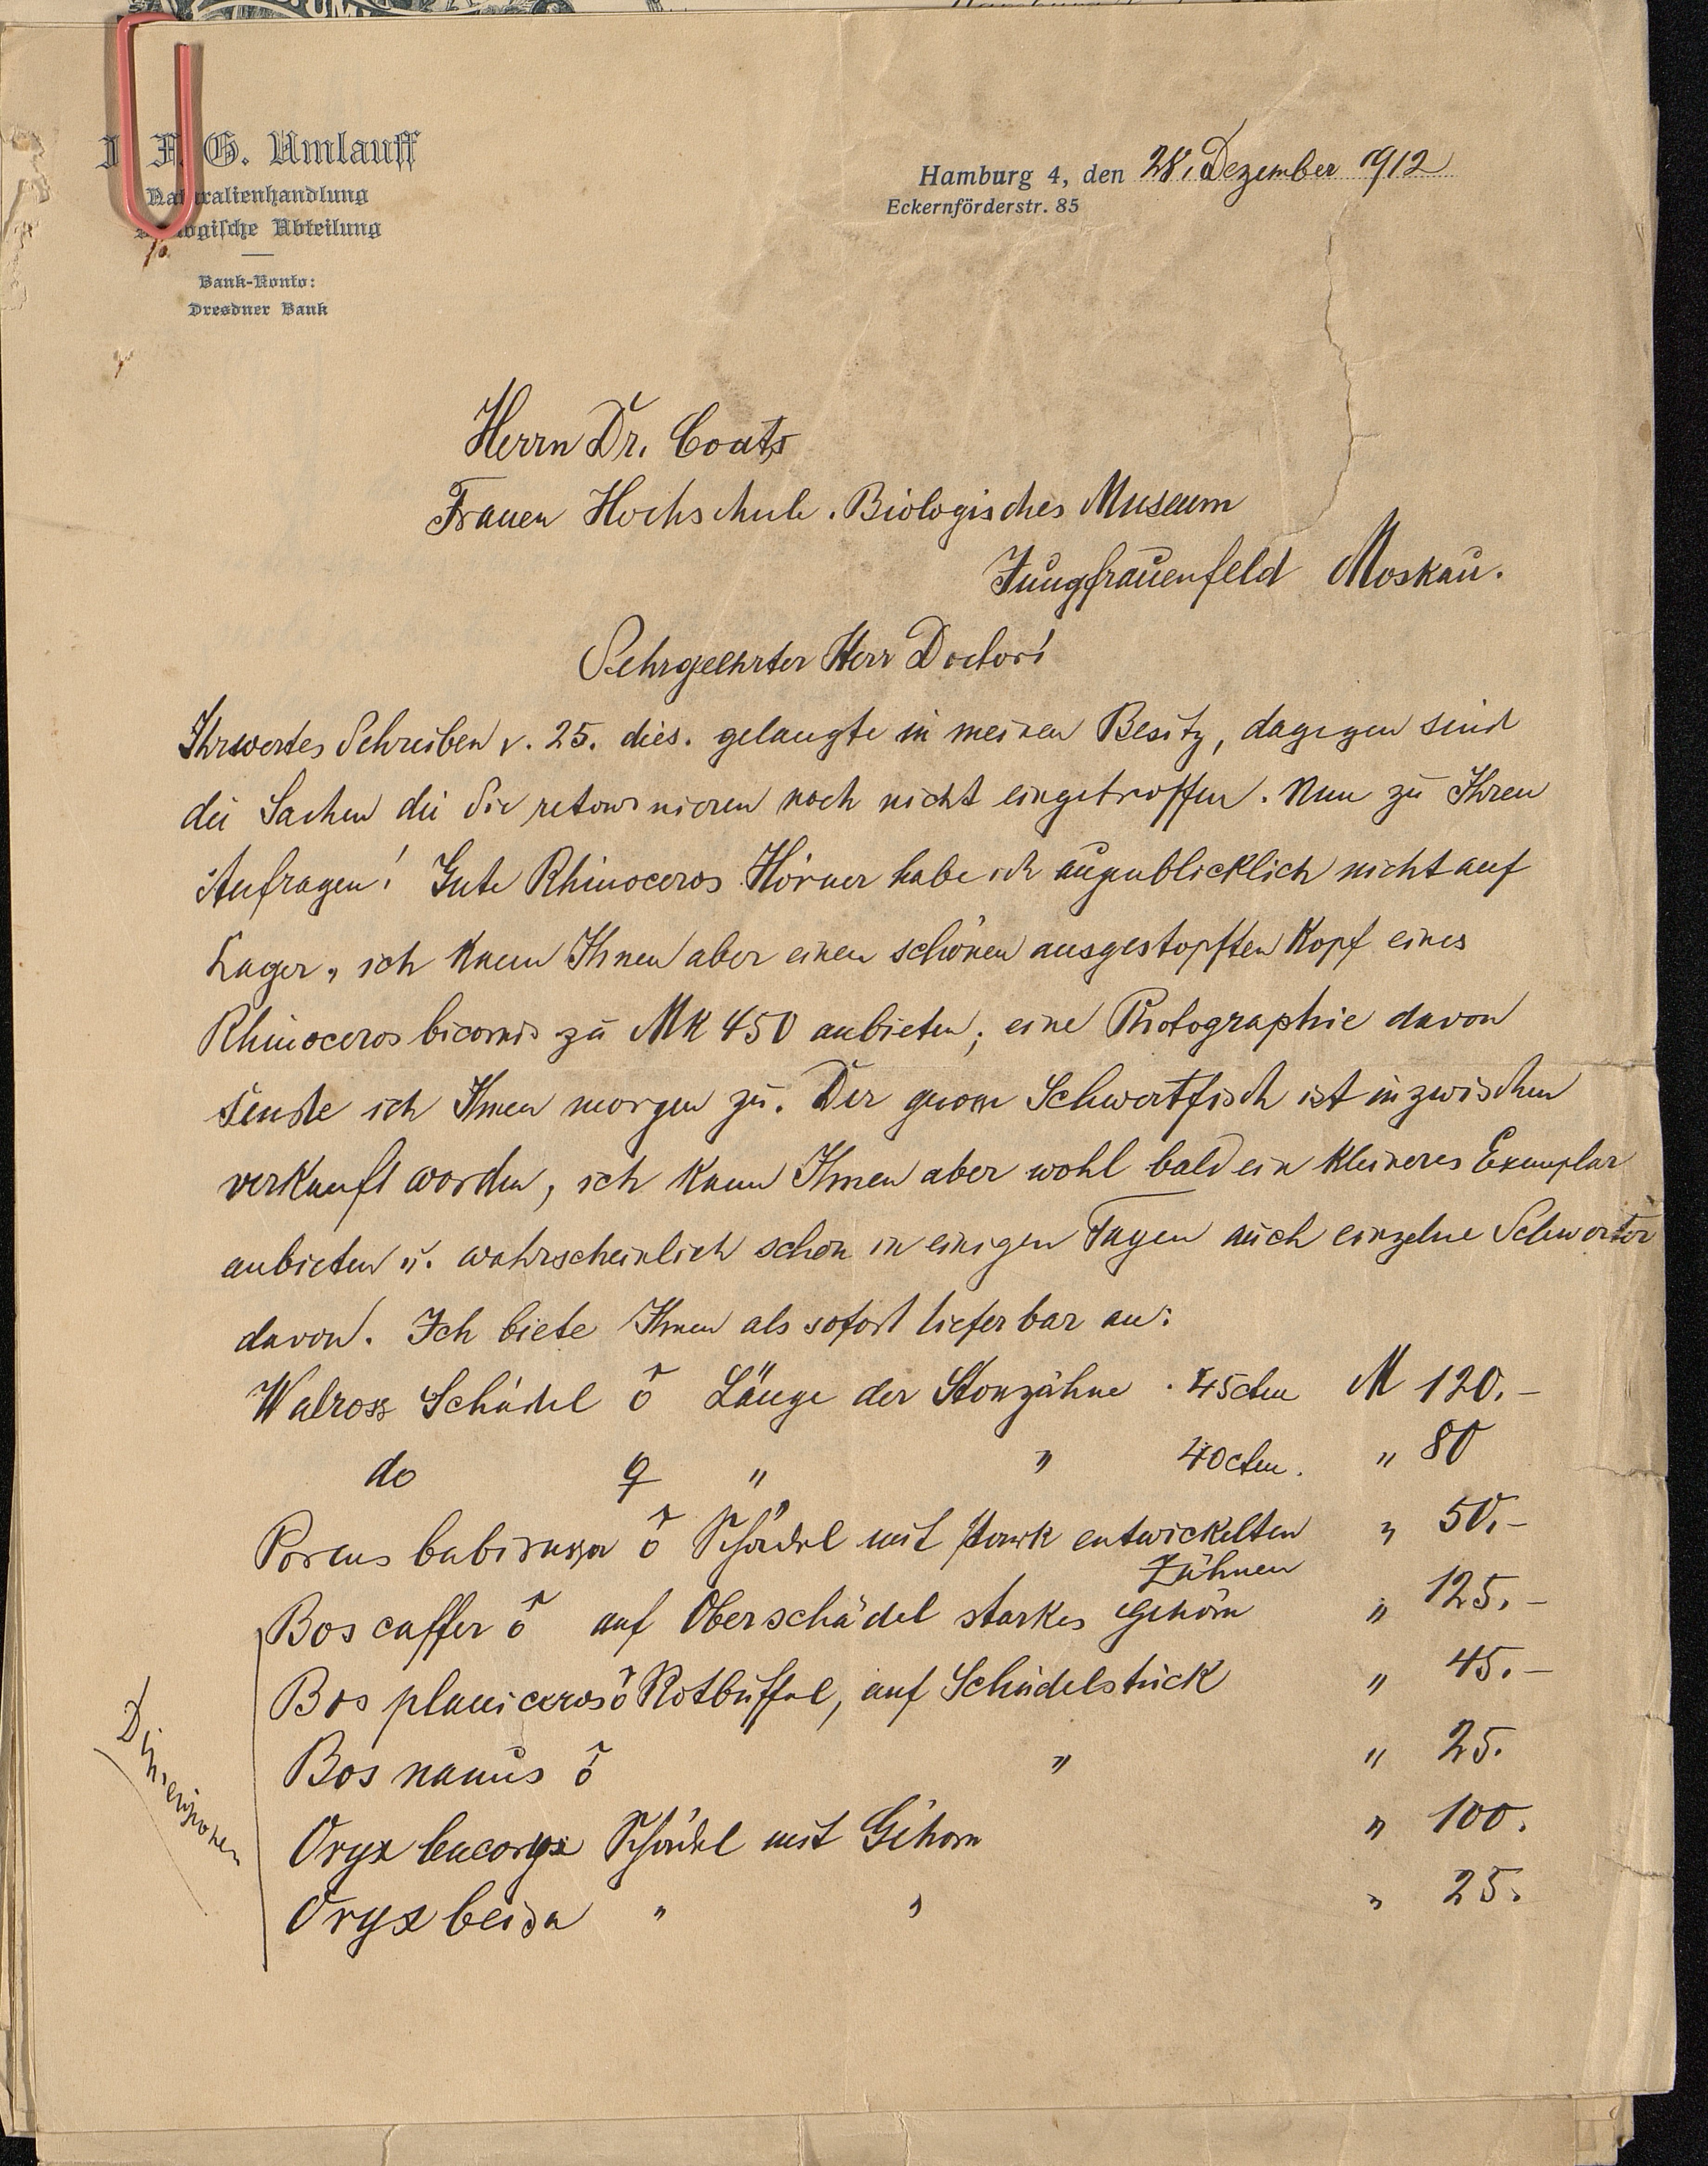 J. F. G. Umlauff
Naturalienhandlung
Zoologische Abteilung
Bank-Konto:
Dresdner Bank
Hamburg 4, den 28. Dezember 1912
Eckernförderstr. 85
Herrn Dr. Coats
Frauen Hochschule. Biologisches Museum
Jungfrauenfeld Moskau.
Sehrgeehrter Herr Doctor!
Ihrwertes Schreiben v. 25. dies. gelangte in meinen Besitz, dagegen sind
die Sachen die Sie retournieren noch nicht eingetroffen. Nun zu Ihren
Anfragen! Gute Rhinoceros Hörner habe ich augenblicklich nicht auf
Lager, ich kann Ihnen aber einen schönen ausgestopften Kopf eines
Rhinoceros bicornis zu Mk 450 anbieten; eine Photographie davon
sende ich Ihnen morgen zu. Der grosse Schwertfisch ist inzwischen
verkauft worden, ich kann Ihnen aber wohl bald ein kleineres Exemplar
anbieten u. wahrscheinlich schon in einigen Tagen auch einzelne Schwerter
davon. Ich biete Ihnen als sofort lieferbar an:
Walross Schädel ♂ Länge der Stosszähne 45ctm M 120.-
do ♀ " " 40ctm. " 80
Porcus babirussa ♂ Schädel mit stark entwickelten " 50.-
Zähnen
Bos caffer ♂ auf Oberschädel starkes Gehörn " 125.-
Bos planiceros ♂ Rotbüffel, auf Schädelstück " 45.-
Bos nanus ♂ " " 25.
Oryx leucoryx Schädel mit Gehörn " 100.
Oryx beisa " " " 25.
Dimensionen